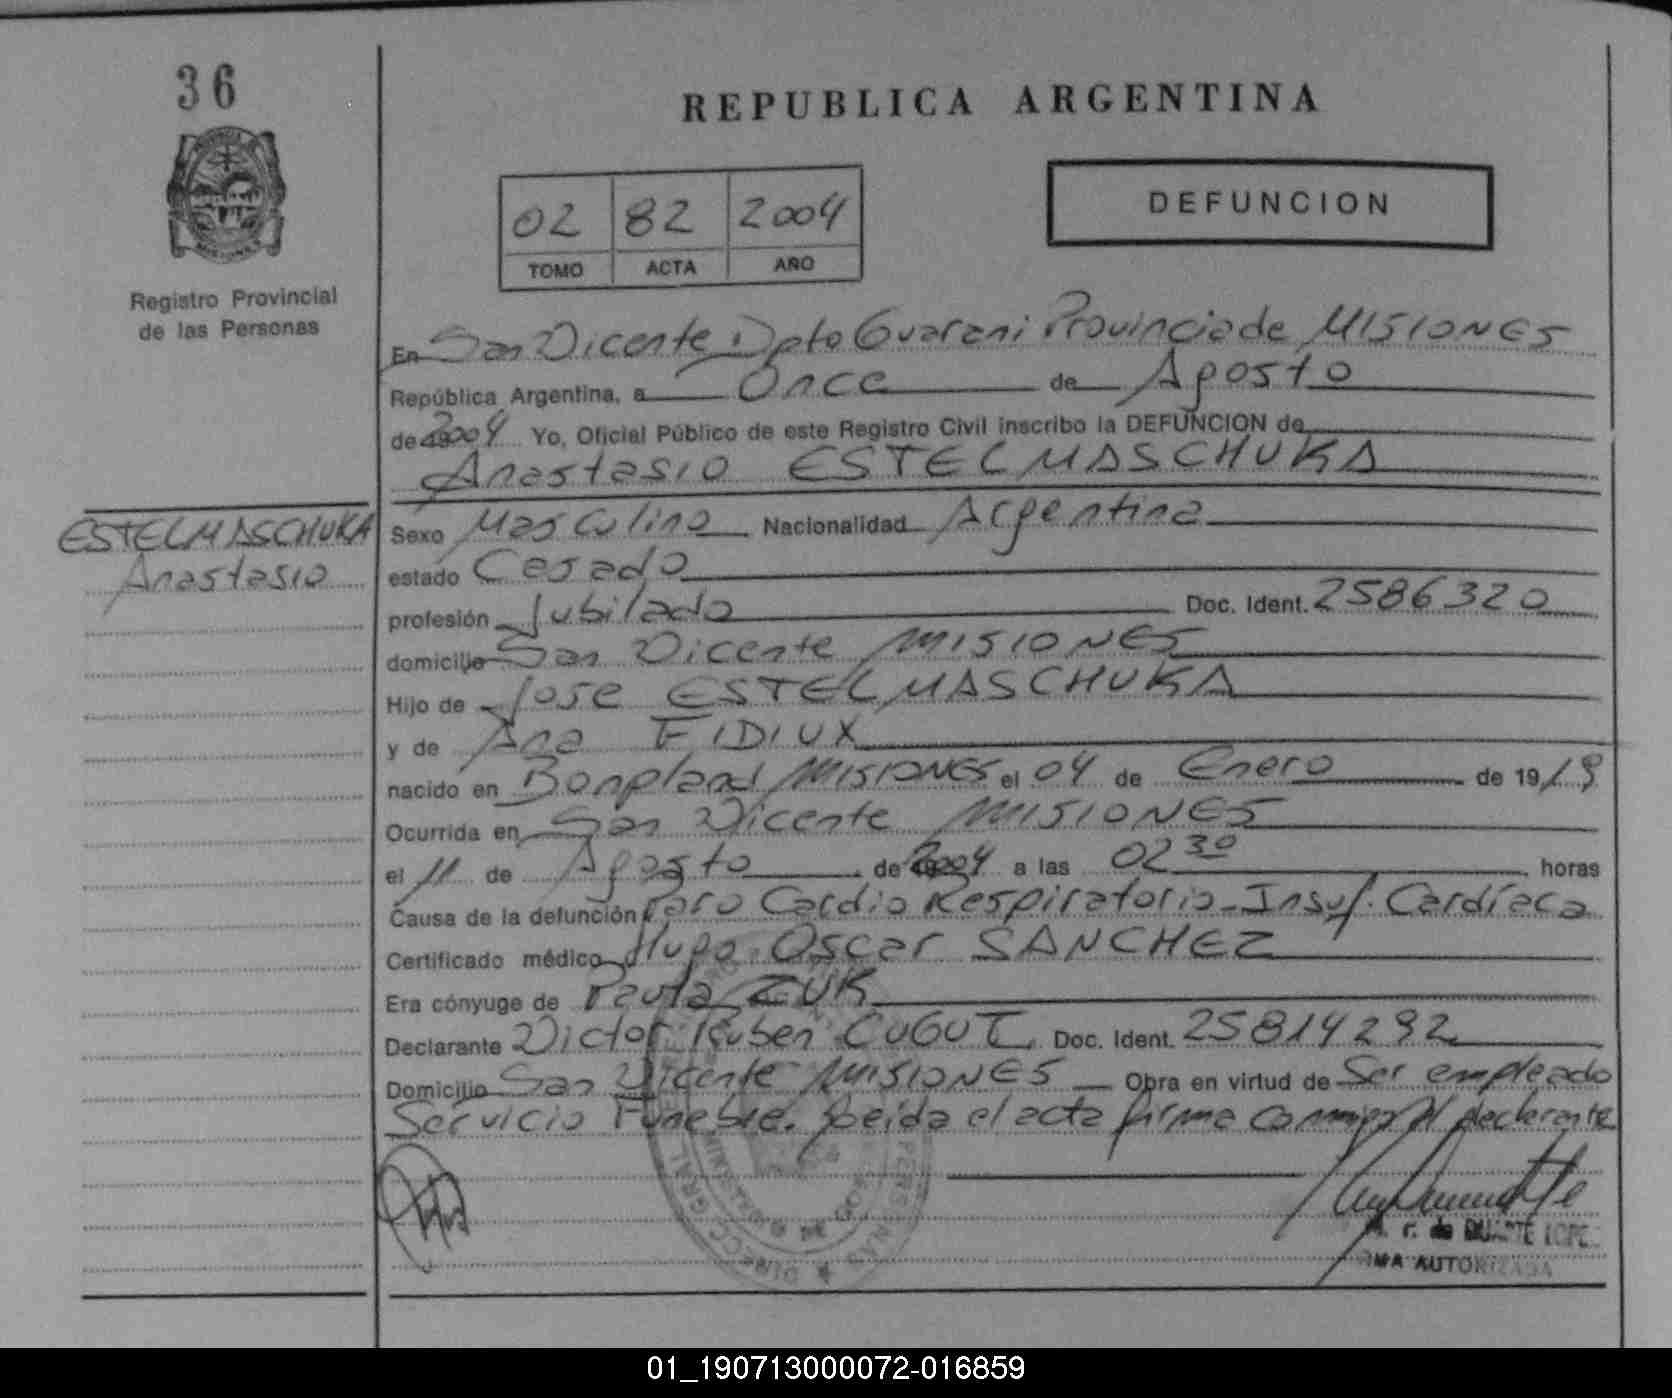 36
REPUBLICA ARGENTINA
Registro Provincial
de las Personas
02 82 2004
TOMO ACTA AÑO
DEFUNCION
En San Vicente Dpto Guarani Provincia de MISIONES
República Argentina, a Once de Agosto
de 2004 Yo, Oficial Público de este Registro Civil inscribo la DEFUNCION de
Anastasio ESTELMASCHUKA
ESTELMASCHUKA
Anastasio
Sexo Masculino Nacionalidad Argentina
estado Casado
profesión Jubilado Doc. Ident. 2586320
domicilio San Vicente MISIONES
Hijo de Jose ESTELMASCHUKA
y de Ana FIDIUX
nacido en Bonpland MISIONES el 04 de Enero de 1919
Ocurrida en San Vicente MISIONES
el 11 de Agosto de 2004 a las 02 30 horas
Causa de la defunción Paro Cardio Respiratorio-Insuf. Cardíaca
Certificado médico Hugo Oscar SANCHEZ
Era cónyuge de Paula ZUK
Declarante Victor Ruben CUGUT Doc. Ident. 25814292
Domicilio San Vicente MISIONES Obra en virtud de Ser empleado
Servicio Funebre. Leida el acta firma conmigo el declarante
de DUARTE LOPE
FIRMA AUTORIZADA
01_190713000072-016859